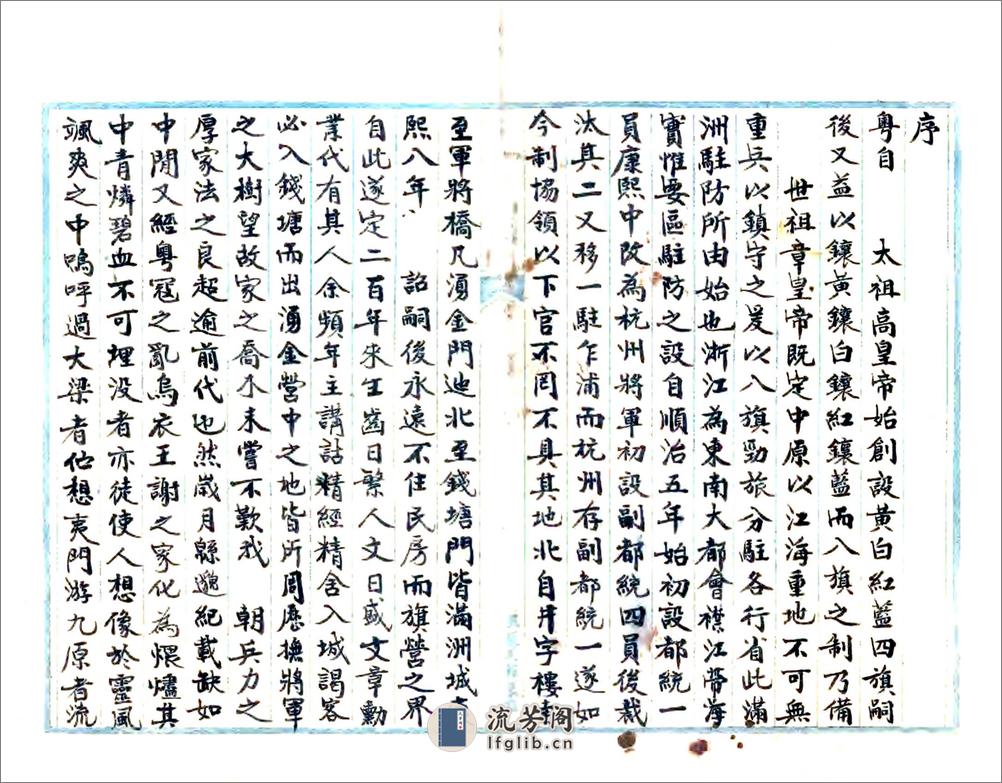 序
粤自　太祖高皇帝始創設黄白紅藍四旗嗣
後又益以鑲黄鑲白鑲紅鑲藍而八旗之制乃備
世祖章皇帝既定中原以江海重地不可無
重兵以鎮守之爰以八旗勁旅分駐各行省此滿
洲駐防所由始也浙江為東南大都會襟江帶海
實惟要區駐防之設自順治五年始初設都統一
員康熙中改為杭州將軍初設副都統四員後裁
汰其二又移一駐乍浦而杭州存副都統一遂如
今制協領以下官不罔不具其地北自井字樓
至軍將橋凡湧金門迆北至錢塘門皆滿洲城
熙八年　詔嗣後永遠不住民房而旗營之界
自此遂定二百年來生齒日繁人文日盛文章勳
業代有其人余頻年主講詁精經精舍入城謁客
必入錢塘而出湧金營中之地皆所周歷撫將軍
之大樹望故家之喬木未嘗不歎我　朝兵力之
厚家法之良超逾前代也然歲月緜邈紀載缺如
中間又經粤寇之亂烏衣王謝之家化為煨燼其
中青燐碧血不可埋没者亦徒使人想像於靈風
颯爽之中嗚呼過大梁者佇想夷門游九原者流
流芳阁
lfglib.cn